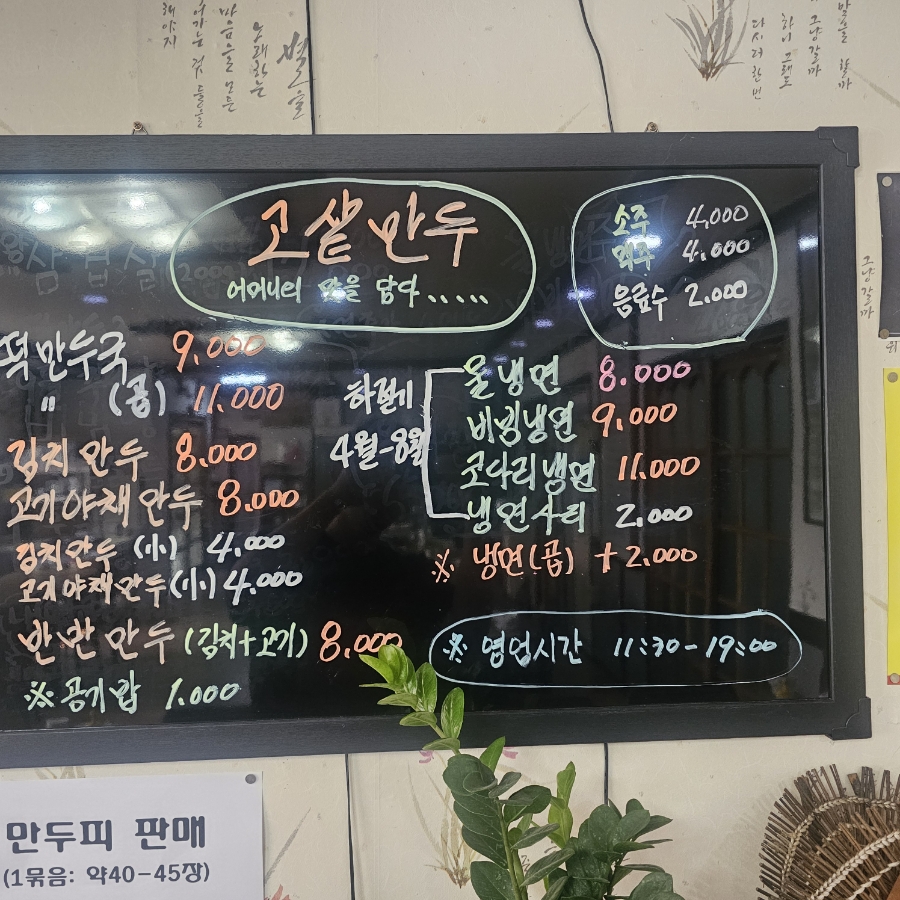 별을
노래하는
마음을 모든
해야지
그냥 갈까
하니 그래도
다시 더 한번
고샅 만두
어머니의 맛을 담다.....
소주 4,000
맥주 4.000
음료수 2.000
떡만두국 9.000
" (곱) 11.000
김치만두 8.000
고기야채만두 8.000
김치만두 (小) 4.000
고기야채만두(小) 4.000
반반만두 (김치+고기) 8.000
※ 공기밥 1.000
하절기
4월-8월
물냉면 8.000
비빔냉면 9.000
코다리냉면 11.000
냉면사리 2.000
※ 냉면(곱) +2.000
※ 영업시간 11:30-19:00
그냥 갈까
만두피 판매
(1묶음: 약40-45장)